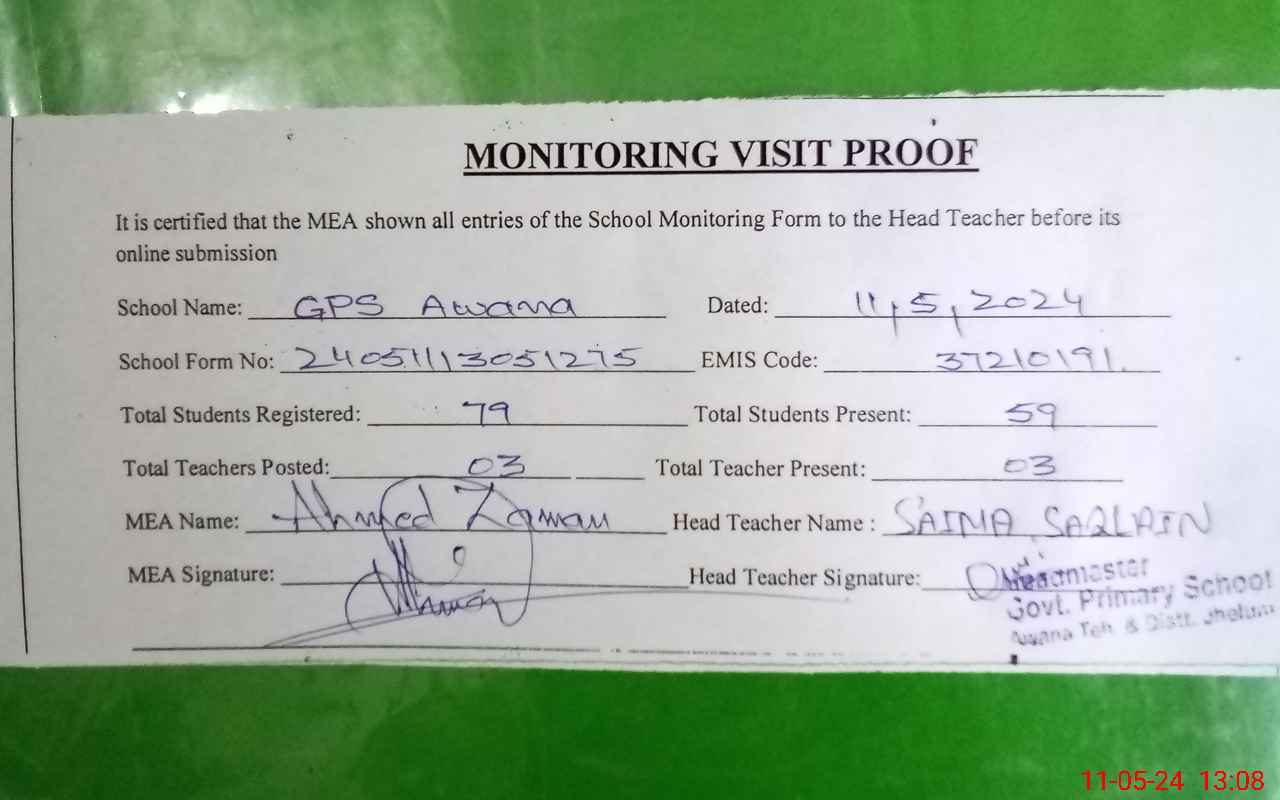 MONITORING VISIT PROOF
It is certified that the MEA shown all entries of the School Monitoring Form to the Head Teacher before its
online submission
School Name: GPS Awana Dated: 11,5,2024
School Form No: 240511113051275 EMIS Code: 37210191.
Total Students Registered: 79 Total Students Present: 59
Total Teachers Posted: 03 Total Teacher Present: 03
MEA Name: Ahmed Zaman Head Teacher Name : SAIMA SAQLAIN
MEA Signature: Head Teacher Signature:
Headmaster
Govt. Primary School
Awana Teh. & Distt. Jhelum
11-05-24 13:08